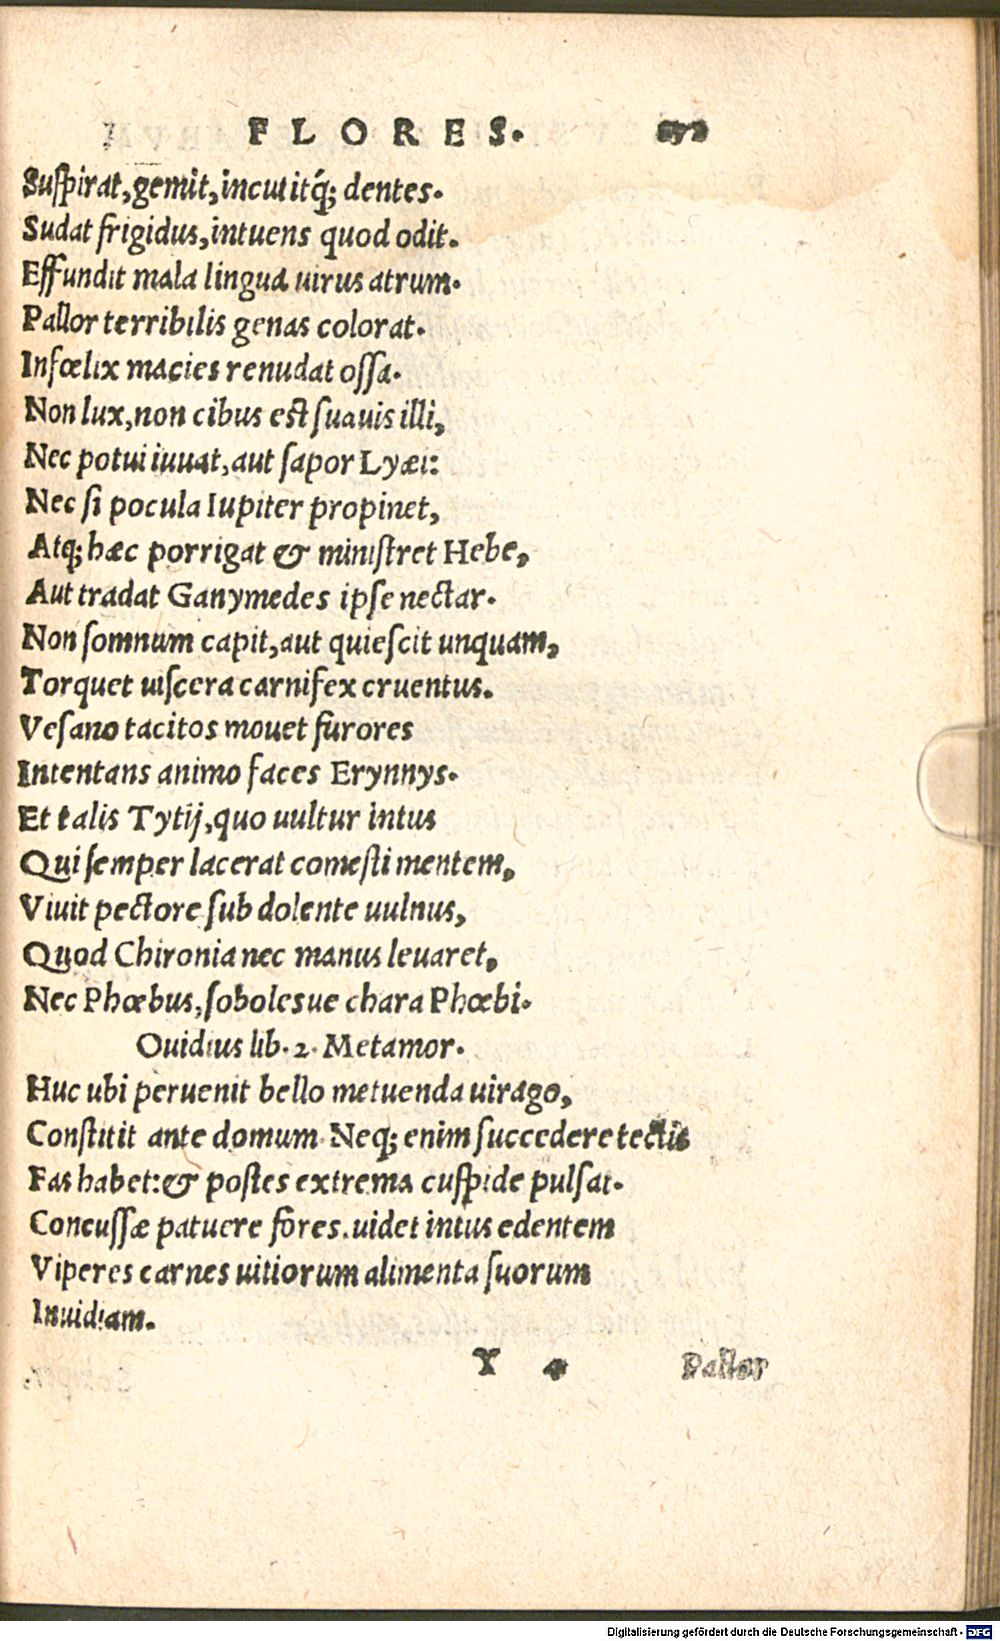 FLORES.
Suſpirat, gemit, incutitq́; dentes.
Sudat frigidus, intuens quod odit.
Effundit mala lingua uirus atrum.
Pallor terribilis genas colorat.
Infœlix macies renudat oſſa.
Non lux, non cibus eſt ſuauis illi,
Nec potui iuuat, aut ſapor Lyæi:
Nec ſi pocula Iupiter propinet,
Atq; hæc porrigat & miniſtret Hebe,
Aut tradat Ganymedes ipſe nectar.
Non ſomnum capit, aut quieſcit unquam,
Torquet uiſcera carnifex cruentus.
Veſano tacitos mouet furores
Intentans animo faces Erynnys.
Et talis Tytij, quo uultur intus
Qui ſemper lacerat comeſti mentem,
Viuit pectore ſub dolente uulnus,
Quod Chironia nec manus leuaret,
Nec Phœbus, ſobolesue chara Phœbi.
Ouidius lib. 2. Metamor.
Huc ubi peruenit bello metuenda uirago,
Conſtitit ante domum Neq; enim ſuccedere tectis
Fas habet: & poſtes extrema cuſpide pulſat.
Concuſſæ patuere fores. uidet intus edentem
Viperes carnes uitiorum alimenta ſuorum
Inuidiam.
Y 4 Pallor
Digitalisierung gefördert durch die Deutsche Forschungsgemeinschaft - DFG